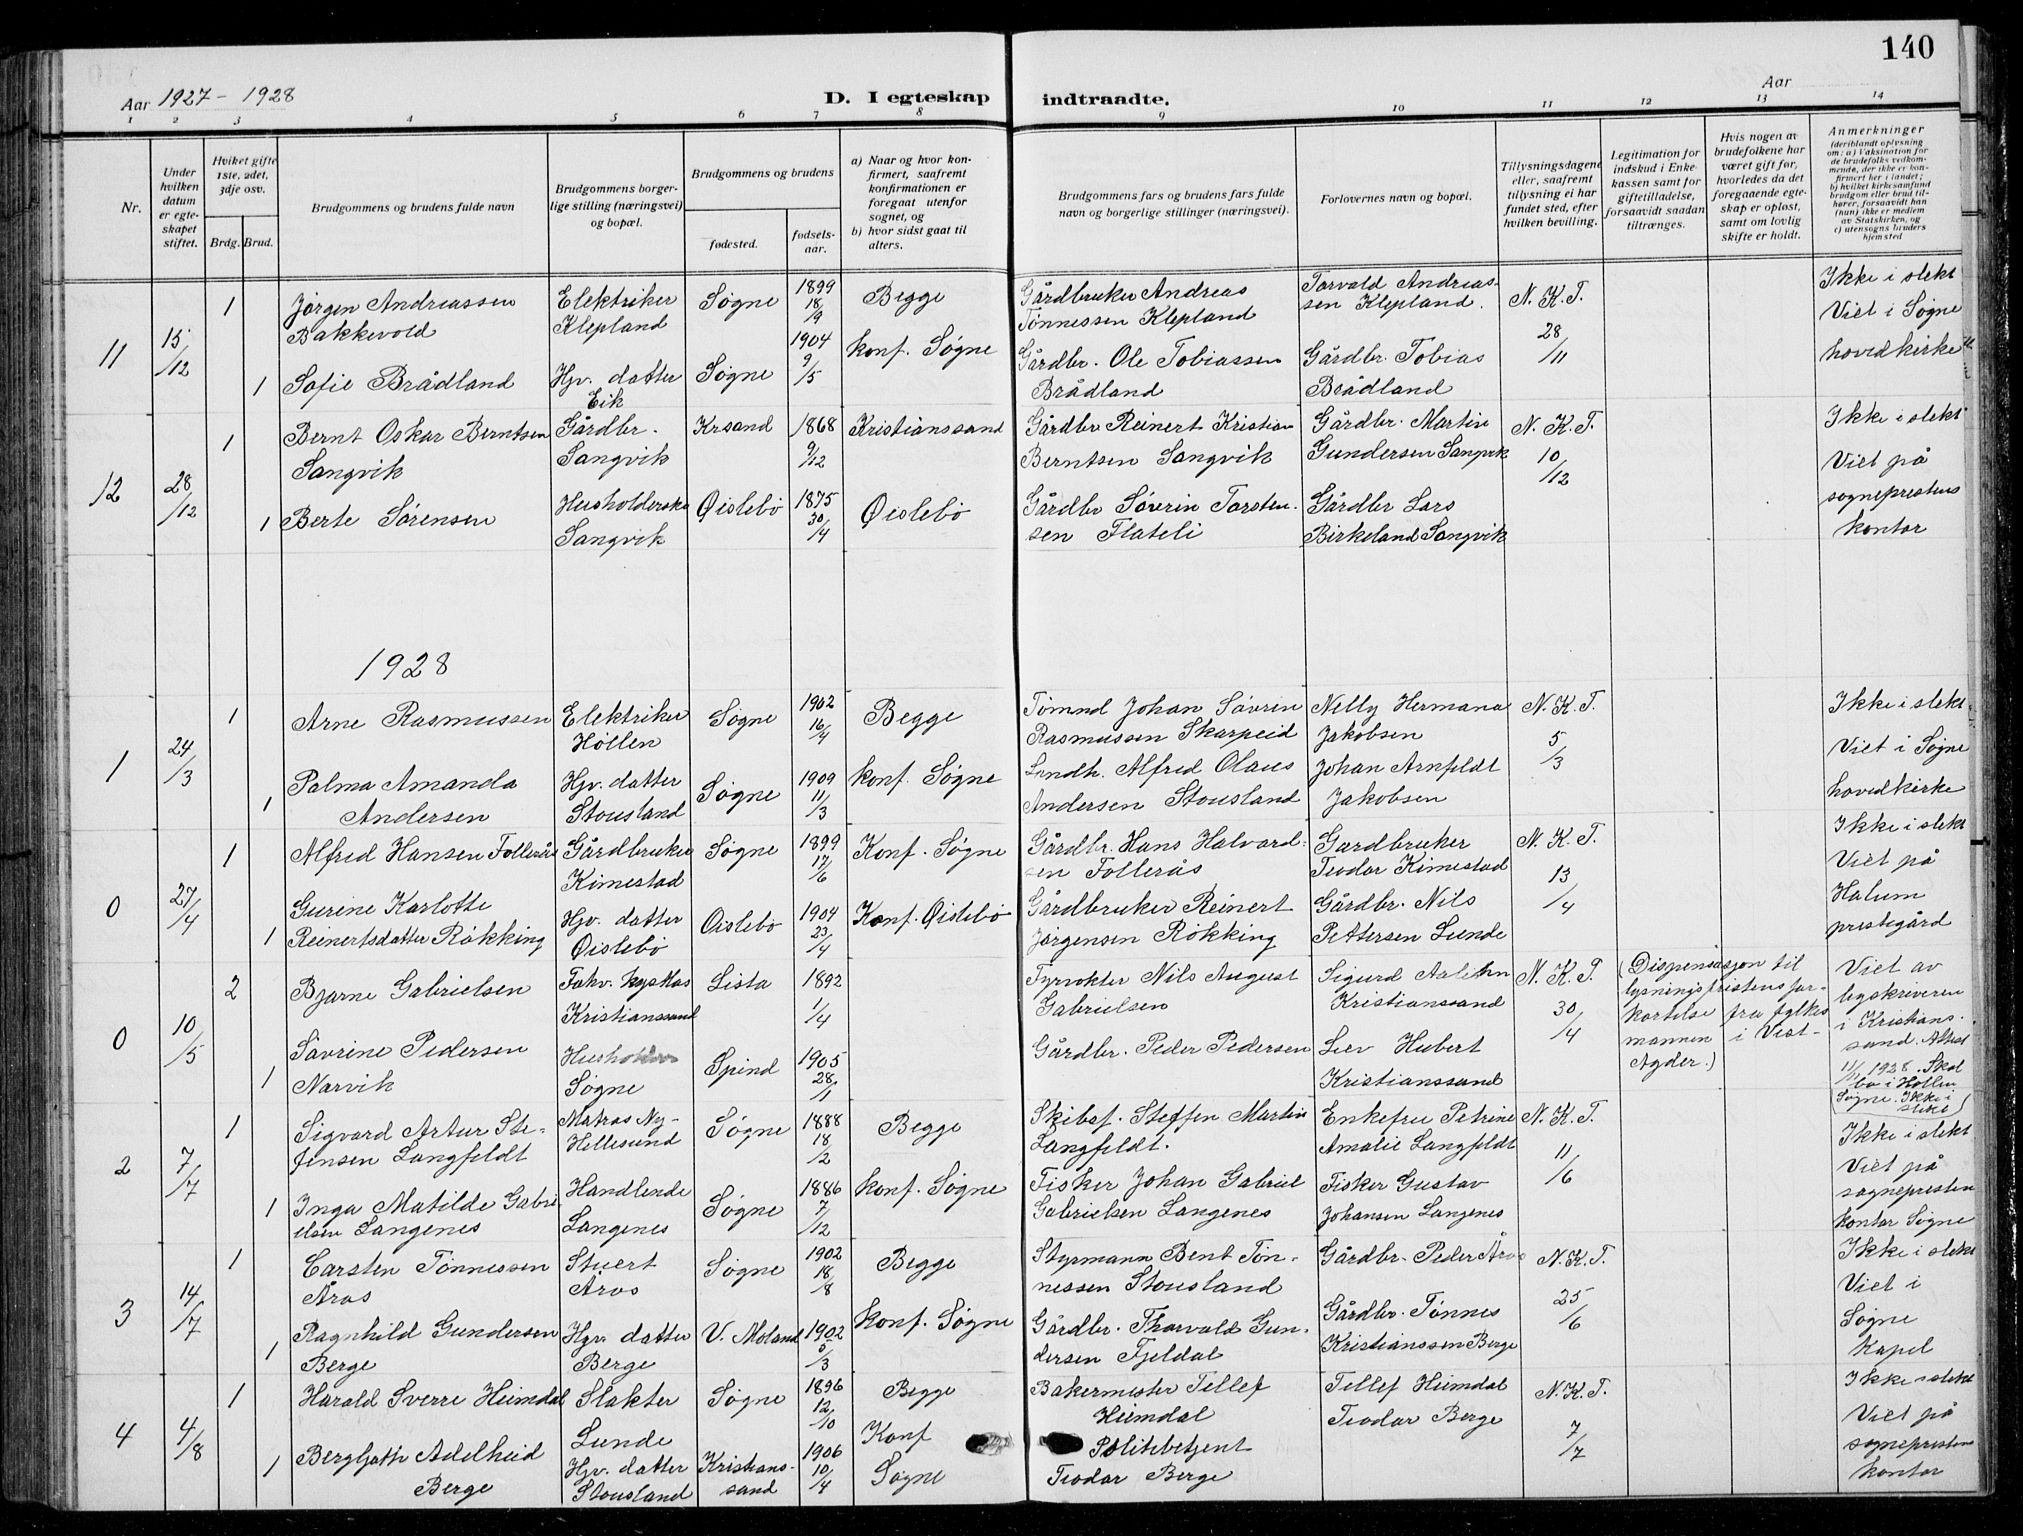 140
Aar 1927 - 1928
D. I egteskap indtraadte.
Aar
1 2 3 4 5 6 7 8 9 10 11 12 13 14
Nr.
Under hvilken datum er egteskapet stiftet.
Hviket gifte 1ste, 2det, 3dje osv.
Brdg. Brud.
Brudgommens og brudens fulde navn
Brudgommens borgerlige stilling (næringsvei) og bopæl.
Brudgommens og brudens
fødested.
fødselsaar.
a) Naar og hvor konfirmert, saafremt konfirmationen er foregaat utenfor sognet, og
b) hvor sidst gaat til alters.
Brudgommens fars og brudens fars fulde navn og borgerlige stillinger (næringsvei).
Forlovernes navn og bopæl.
Tillysningsdagene eller, saafremt tillysning ei har fundet sted, efter hvilken bevilling.
Legitimation for indskud i Enkekassen samt for giftetilladelse, forsaavidt saadan tiltrænges.
Hvis nogen av brudefolkene har været gift før, hvorledes da det foregaaende egteskap er opløst, samt om lovlig skifte er holdt.
Anmerkninger
(deriblandt oplysning om: a) Vaksination for de brudefolks vedkommende, der ikke er konfirmert her i landet; b) hvilket kirkesamfund brudgom eller brud tilhører, forsaavidt han (hun) ikke er medlem av Statskirken, og c) utensogns bruders hjemsted
11 15/12
1 Jørgen Andreassen Bakkevold
Elektriker Klepland
Søgne
1899 18/9
Begge konf. Søgne
Gårdbruker Andreas Tønnessen Klepland
Torvald Andreassen Klepland.
N. K. T. 28/11
Ikke i slekt
Viet i Søgne
hovedkirke
1 Sofie Brådland
Hjv. datter Eik
Søgne
1904 9/5
Gårdbr. Ole Tobiassen Brådland
Gårdbr. Tobias Brådland
12 28/12
1 Bernt Oskar Berntsen Sangvik
Gårdbr. Sangvik
Krsand
1868 9/12
Kristianssand
Gårdbr. Reinert Kristian Berntsen Sangvik
Gårdbr. Martin Gundersen Sangvik
N. K. T. 10/12
Ikke i slekt
Viet på
sogneprestens
kontor
1 Berte Sørensen
Husholderske Sangvik
Øislebø
1875 30/4
Øislebø
Gårdbr Søverin Torstensen Flateli
Gårdbr Lars Birkeland Sangvik
1928
1 24/3
1 Arne Rasmussen
Elektriker Høllen
Søgne
1902 16/4
Begge konf. Søgne
Tømnd Johan Søvrin Rasmussen Skarpeid
Nelly Hermana Jakobsen
N. K. T. 5/3
Ikke i slekt
Viet i Søgne
hovedkirke
1 Palma Amanda Andersen
Hjv. datter Stousland
Søgne
1909 11/3
Landh. Alfred Olaus Andersen Stousland
Johan Arnfeldt Jakobsen
0 27/4
1 Alfred Hansen Follerås
Gårdbruker Kimestad
Søgne
1899 17/6
Konf. Søgne
Gårdbr. Hans Halvardsen Follerås
Gardbruker Teodor Kimestad
N. K. T. 13/4
Ikke i slekt
Viet på
Halum
prestegård
1 Gurine Karlotte Reinertsdatter Røkking
Hjv. datter Øislebø
Øislebø
1904 23/4
Konf. Øislebø
Gårdbruker Reinert Jørgensen Røkking
Gårdbr. Nils Pettersen Lunde
0 10/5
2 Bjarne Gabrielsen
Kristianssand
Lista
1892 1/4
Fyrvokter Nils August Gabrielsen
Sigurd Kristianssand
N. K. T. 30/4
(Dispensasjon til lysningsfristens forkortelse fra fylkesmannen i Vest-Agder.)
Viet av
byskriveren
i Kristianssand.
1928. Skal bo i Høllen Søgne. Ikke i slekt)
1 Søvrine Pedersen Narvik
Husholder Søgne
Spind
1905 28/1
Gårdbr. Peder Pedersen
Hubert Kristianssand
2 7/7
1 Sigvard Artur Stefensen Langfeldt
Matros Ny-Hellesund
Søgne
1888 18/2
Begge konf. Søgne
Skibsf. Steffen Martin Langfeldt.
Enkefru Petrine Amalie Langfeldt
N. K. T. 11/6
Ikke i slekt
Viet på
sogneprestens
kontor Søgne
1 Inga Matilde Gabrielsen Langenes
Handlende Langenes
Søgne
1886 7/12
Fisker Johan Gabriel Gabrielsen Langenes
Fisker Gustav Johansen Langenes
3 14/7
1 Carsten Tønnessen Åros
Stuert Åros
Søgne
1902 18/8
Begge konf. Søgne
Styrmann Bent Tønnessen Stousland
Gårdbr. Peder Åros
N. K. T. 25/6
Ikke i slekt
Viet i
Søgne
Kapel
1 Ragnhild Gundersen Berge
Hjv. datter Berge
V. Moland
1902 5/3
Gårdbr. Thorvald Gundersen Fjeldal
Gårdbr. Tønnes Kristianssen Berge
4 4/8
1 Harald Sverre Heimdal
Slakter Lunde
Søgne
1896 12/10
Begge Konf Søgne
Bakermester Tellef Heimdal
Tellef Heimdal
Teodor Berge
N. K. T. 7/7
Ikke i slekt
Viet på
sogneprestens
kontor
1 Bergljott Adelheid Berge
Hjv. datter Stousland
Kristianssand
1906 10/4
Politibetjent Teodor Berge